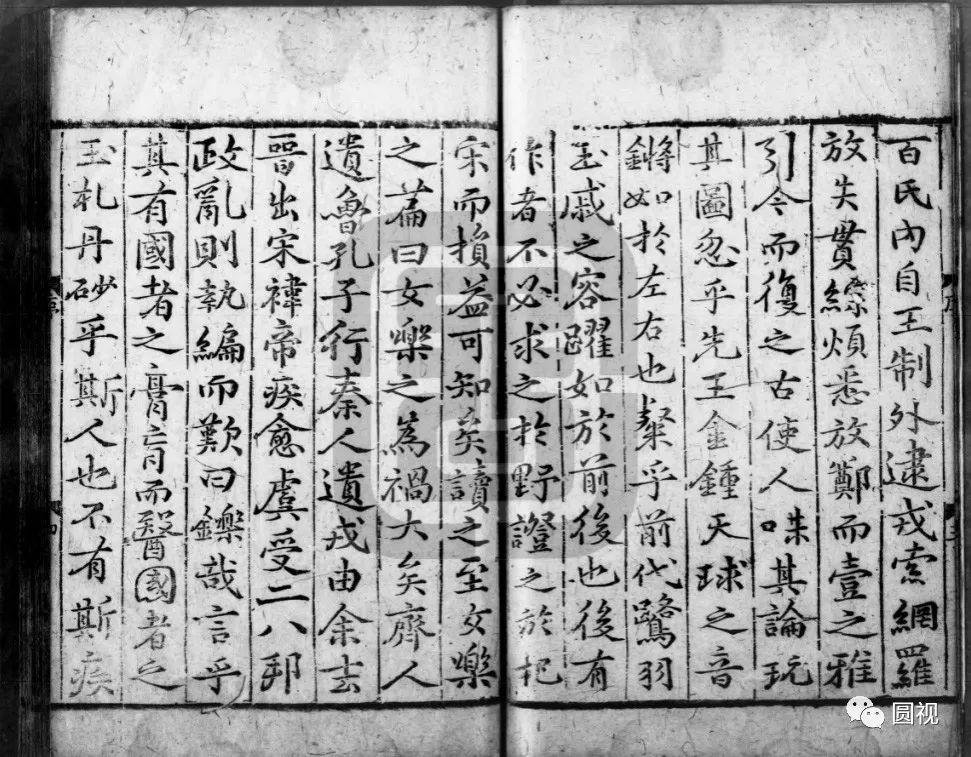 百氏內自王制外逮戎索網羅
放失貫綜煩悉放鄭而壹之雅
引今而復之古使人味其論玩
其圖忽乎先王金鍾天球之音
鏘如於左右也粲乎前代鷺羽
玉戚之容躍如於前後也後有
作者不必求之於野證之於杞
宋而損益可知矣讀之至女樂
之萹曰女樂之為禍大矣齊人
遺魯孔子行秦人遺戎由余去
晉出宋褘帝疾愈虞受二八邦
政亂則執編而歎曰鑠哉言乎
其有國者之膏肓而醫國者之
玉札丹砂乎斯人也不有斯疾
圆视